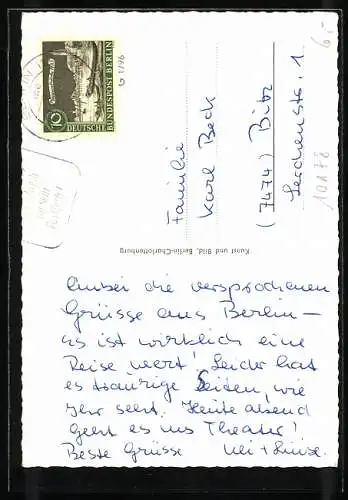 10
DEUTSCHE BUNDESPOST BERLIN
G 1/96
6,-
Familie
Karl Beck
(7474) Bitz
Lerchenstr. 1
10A78
Kunst und Bild, Berlin-Charlottenburg
Anbei die versprochenen
Grüsse aus Berlin –
es ist wirklich eine
Reise wert! Leider hat
es traurige Seiten, wie
Ihr seht. Heute abend
geht es ins Theater!
Beste Grüsse